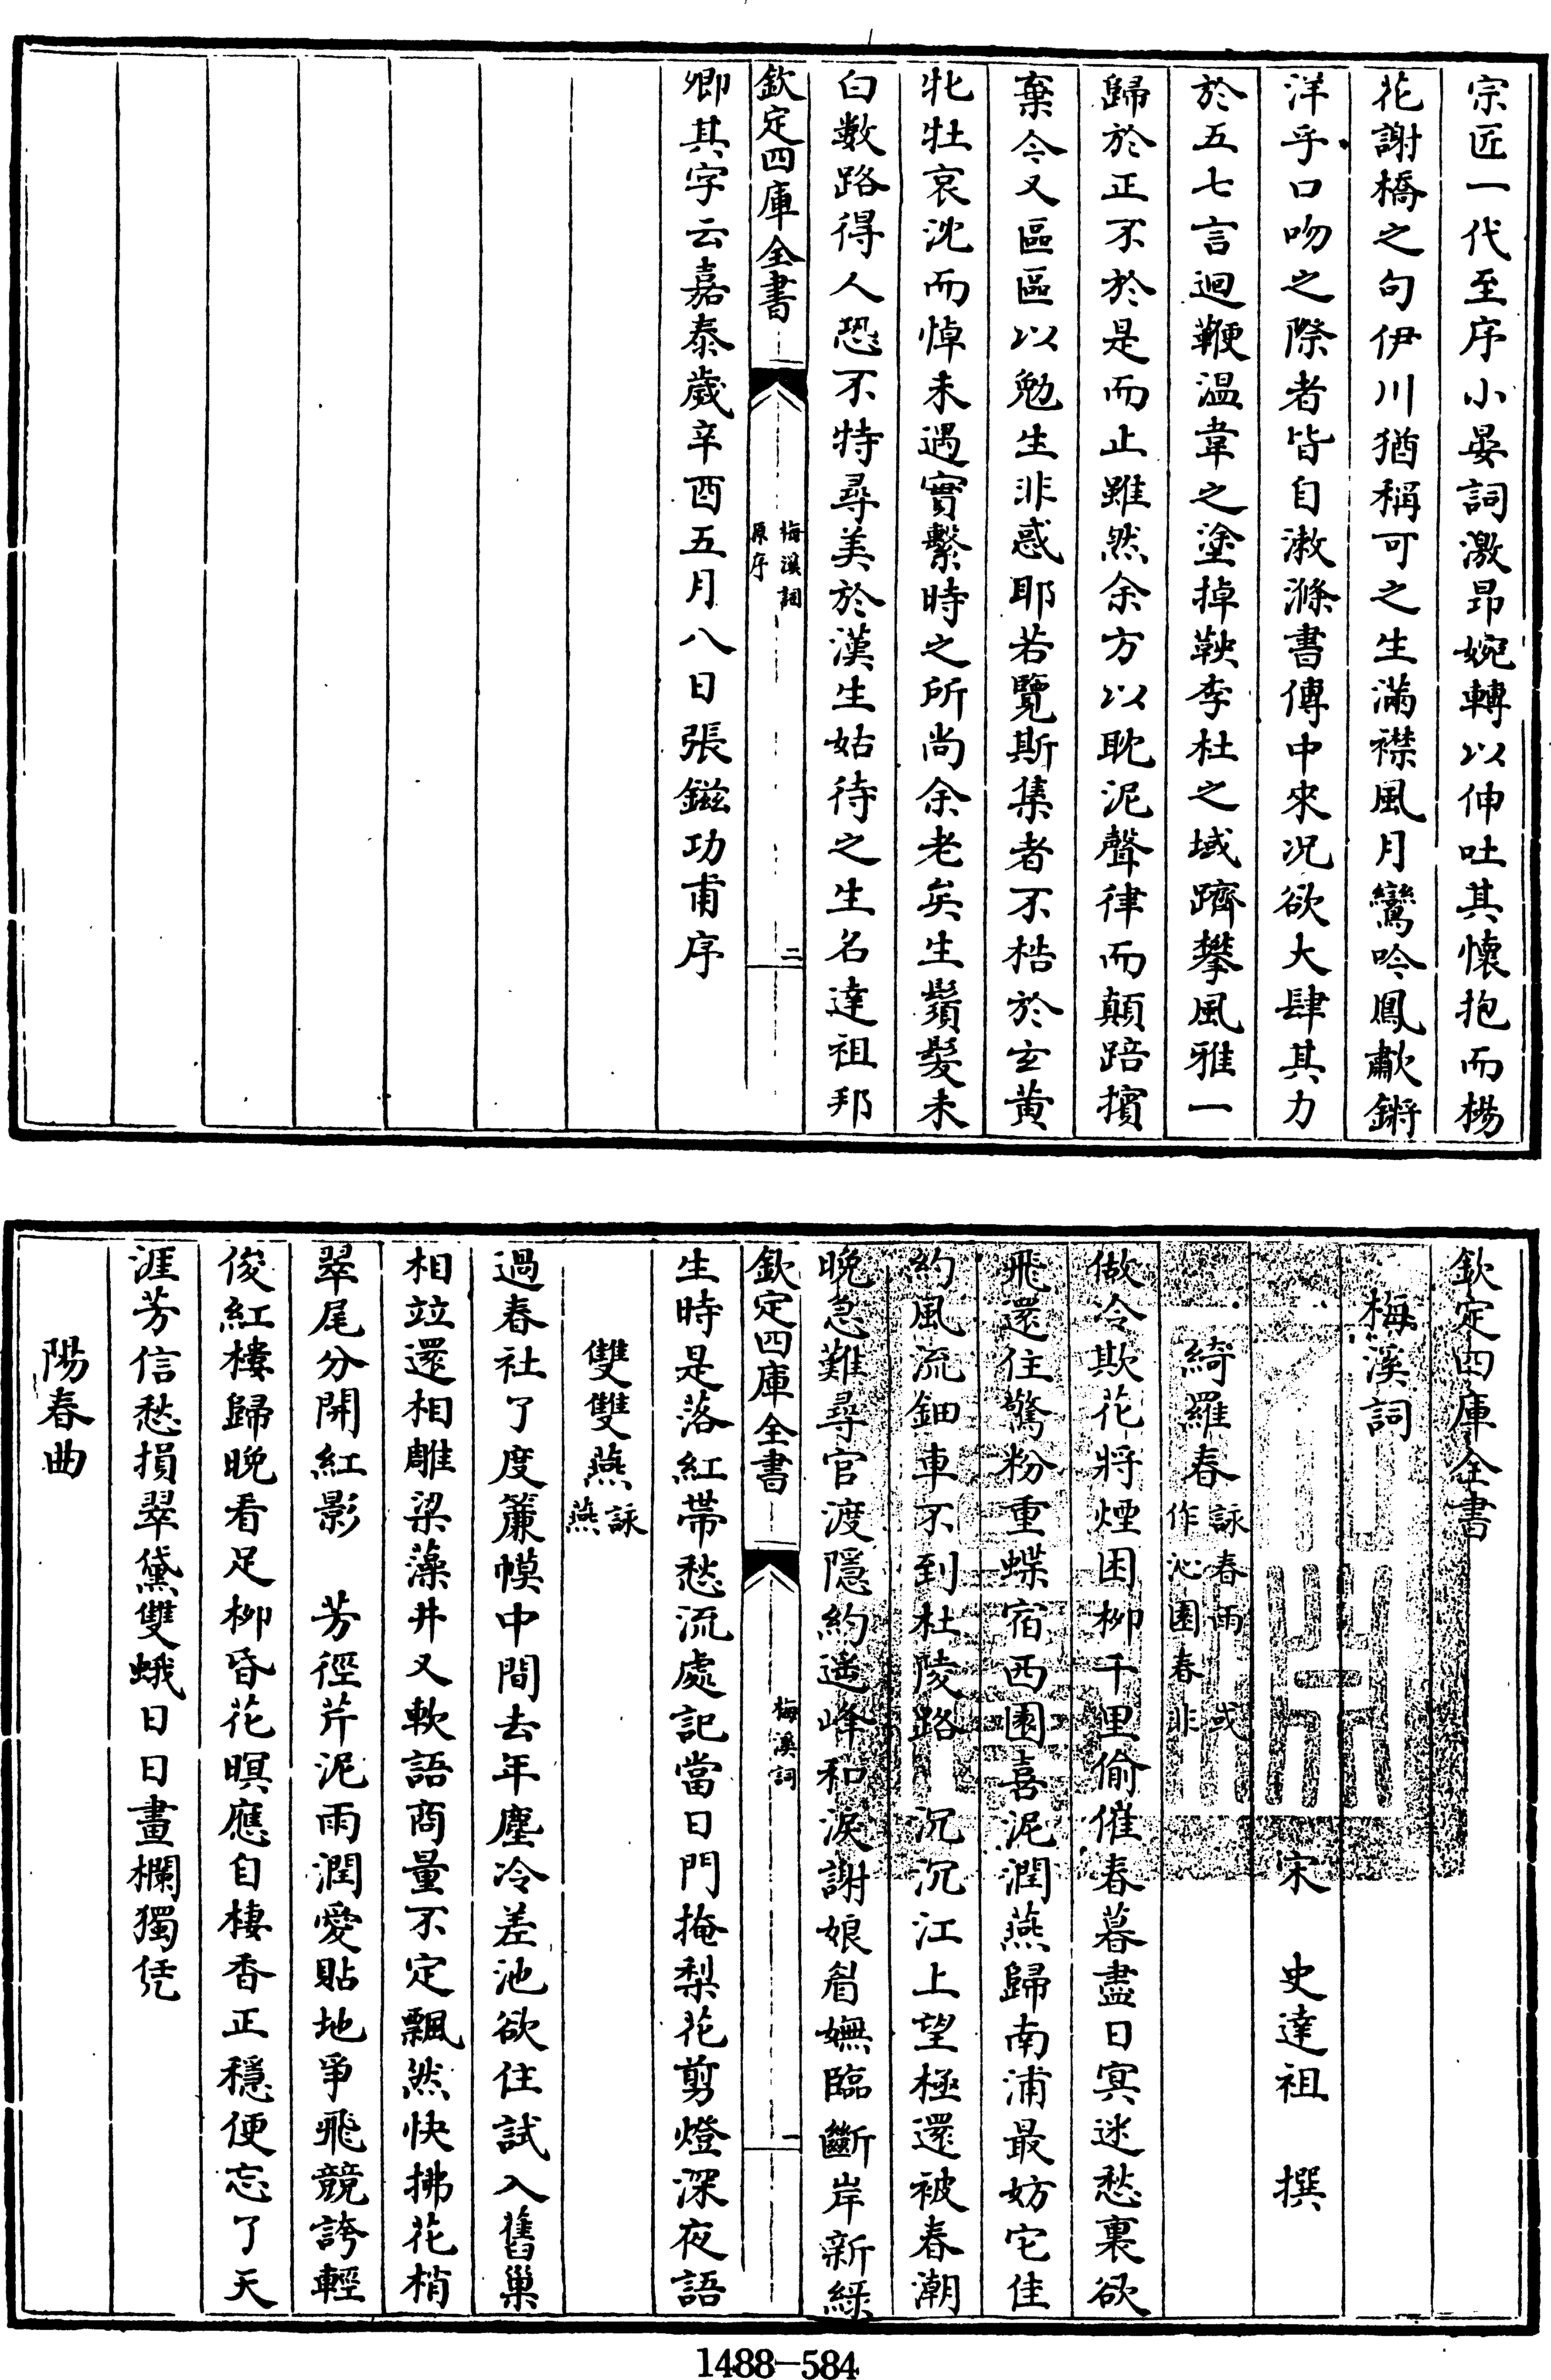 宗匠一代至序小晏詞激昂婉轉以伸吐其懷抱而楊
花謝橋之句伊川猶稱可之生滿襟風月鸞吟鳳歗鏘
洋乎口吻之際者皆自漱滌書傳中來况欲大肆其力
於五七言迴鞭温韋之塗掉鞅李杜之域躋攀風雅一
歸於正不於是而止雖然余方以耽泥聲律而顛踣擯
棄今又區區以勉生非惑耶若覽斯集者不梏於玄黄
牝牡哀沈而悼未遇實繫時之所尚余老矣生鬚髮未
白數路得人恐不特尋美於漢生姑待之生名達祖邦
欽定四庫全書
梅溪詞
原序
二
卿其字云嘉泰歲辛酉五月八日張鎡功甫序
欽定四庫全書
梅溪詞
宋 史達祖 撰
綺羅春 詠春雨或
作沁園春非
做冷欺花將煙困柳千里偷催春暮盡日冥迷愁裏欲
飛還住驚粉重蝶宿西園喜泥潤燕歸南浦最妨它佳
約風流鈿車不到杜陵路 沉沉江上望極還被春潮
晚急難尋官渡隱約遙峰和淚謝娘眉嫵臨斷岸新綠
欽定四庫全書
梅溪詞
一
生時是落紅帶愁流處記當日門掩梨花剪燈深夜語
雙雙燕 詠
燕
過春社了度簾幙中間去年塵冷差池欲住試入舊巢
相竝還相雕梁藻井又軟語商量不定飄然快拂花梢
翠尾分開紅影 芳徑芹泥雨潤愛貼地爭飛競誇輕
俊紅樓歸晚看足柳昏花暝應自棲香正穩便忘了天
涯芳信愁損翠黛雙蛾日日畫欄獨凭
陽春曲
1488-584